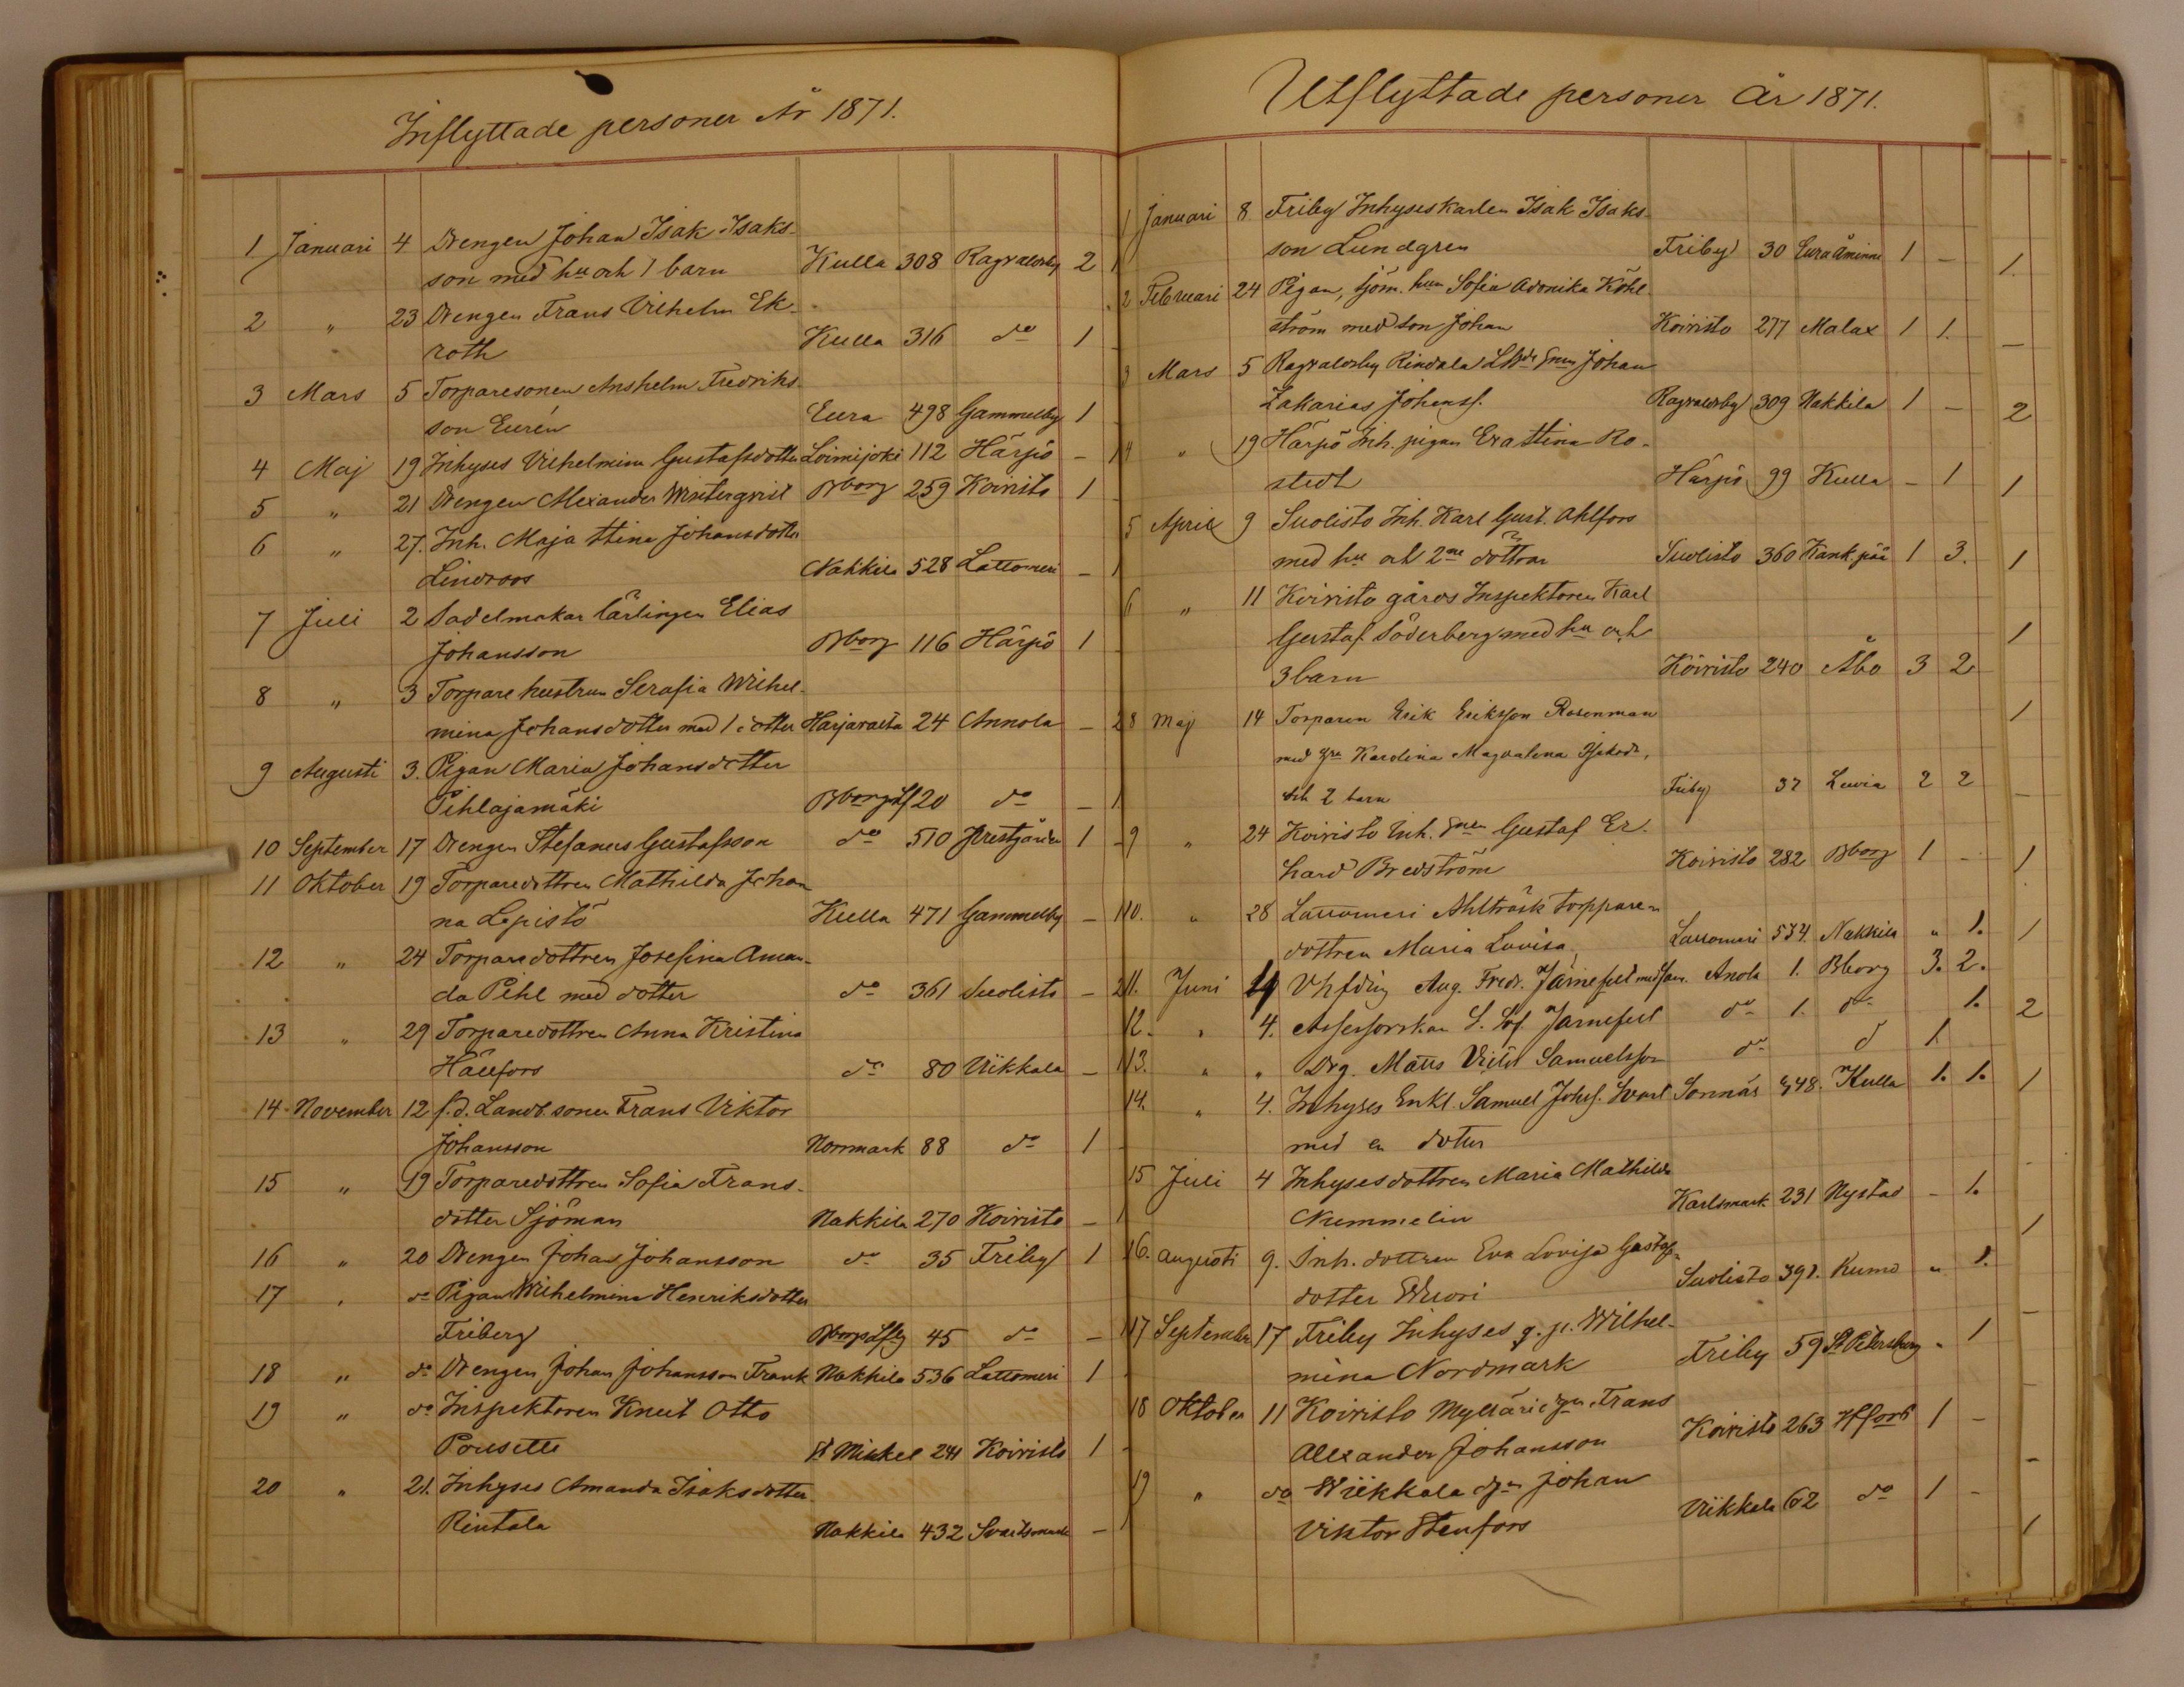 Inflyttade personer År 1871.
1 Januari 4 Drengen Johan Isak Isaks-
son med hu och 1 barn Kulla 308 Ragvaldsby 2 1
2 " 23 Drengen Frans Vilhelm Ek-
roth Kulla 316 do 1 -
3 Mars 5 Torparesonen Anshelm Fredriks-
son Eurén Eura 498 Gammelby 1 -
4 Maj 19 Inhyses Vilhelmina Gustafsdotter Loimijoki 112 Härpö - 1
5 " 21 Drengen Alexander Westerqvist Bborg 259 Koivisto 1 -
6 " 27. Inh. Maja Stina Johansdotter
Lindroos Nakkila 528 Lattomeri - 1
7 Juli 2 Sadelmakar lärlingen Elias
Johansson Bborg 116 Härpö 1 -
8 " 3 Torpare hustrun Serafia Wilhel-
mina Johansdotter med 1 dotter Harjavalta 24 Annola - 2
9 Augusti 3. Pigan Maria Johansdotter
Pihlajamäki Bborg Lf 20 do - 1
10 September 17 Drengen Stefanus Gustafsson do 510 Prestgården 1 -
11 Oktober 19 Torparedottren Mathilda Johan
na Lepistö Kulla 471 Gammelby - 1
12 " 24 Torparedottren Josefina Aman-
da Pihl med dotter do 361 Suolisto - 2
13 " 29 Torparedottren Anna Kristina
Hällfors do 80 Viikkala - 1
14 November 12 f.d. Landb. sonen Frans Viktor
Johansson Norrmark 88 do 1 -
15 " 19 Torparedottren Sofia Frans-
dotter Sjöman Nakkila 270 Koivisto - 1
16 " 20 Drengen Johan Johansson do 35 Friby 1
17 " do Pigan Wilhelmina Henriksdotter
Friberg Bborgs Lfg 45 do - 1
18 " do Drengen Johan Johansson Frank Nakkila 536 Lattomeri 1
19 " do Inspektoren Knut Otto
Pousette St Mickel 241 Koivisto 1 -
20 " 21. Inhyses Amanda Isaksdotter
Rintala Nakkila 432 Svartsmark -
Utflyttade personer År 1871.
1 Januari 8. Friby Inhyseskarlen Isak Isaks-
son Lundgren Friby 30 Euraåminne 1 -
2 Februari 24 Pigan, sjöm. hun Sofia Adonika Köhl
ström med son Johan Koivisto 277 Malax 1 1.
3 Mars 5 Ragvaldsby Rindala Johan
Zakarias Johanss. Ragvaldsby 309 Nakkila 1 -
4 " 19 Härpö Inh. pigan Eva Stina Ro-
stedt Härpö 99 Kulla - 1
5 April 9 Suolisto Inh. Karl Gust. Ahlfors
med hu och 2ne döttrar Suolisto 360 Kank.pää 1 3.
6 " 11 Koivisto gårds Inspektoren Karl
Gustaf Söderberg med hu och
3 barn Koivisto 240 Åbo 3 2
8 Maj 14 Torparen Erik Eriksson Rosenman
med Karolina Magdalena
och 2 barn Friby 37 Luvia 2 2
9 " 24 Koivisto Inh. Gustaf Er-
hard Bredström Koivisto 282 Bborg 1 -
10. " 28 Lattomeri Ahlträsk torppare-
dottren Maria Lovisa Lattomeri 534. Nakkila " 1.
11. Juni 4 Aug. Fredr. Järnefelt med fam. Anola 1. Bborg 3. 2.
12. " 4. Assessorskan S. Sof. Järnefelt do 1. do 1.
13. " " Drg. Matts Samuelsson do d 1.
14. " 4. Inhyses Enkl. Samuel Johs. Svart Sonnäs 448. Kulla 1. 1.
med en dotter
15 Juli 4 Inhysesdottren Maria Mathilda
Nummelin Karlsmark 231 Nystad - 1.
16. Augusti 9. Inh. dottren Eva Lovisa Gustafs-
dotter Wuori Suolisto 391. Kumo " 1.
17 September 17 Friby Inhyses q. p. Wilhel-
mina Nordmark Friby 59 St Petersburg " 1
18 Oktober 11 Koivisto Mylläri Frans
Alexander Johansson Koivisto 263 Hfors 1 -
19 " do Wiikkala Johan
Viktor Stenfors Viikkala 62 do 1 -
1.
-
2
1
1
1
1
-
1
1
2
1
-
1
-
-
-
1